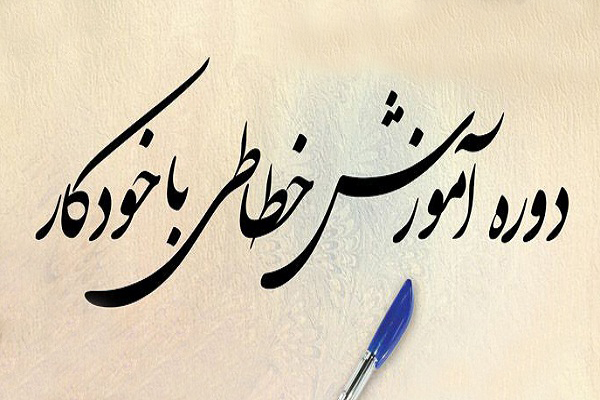 دوره آموزش خطاطی با خودکار